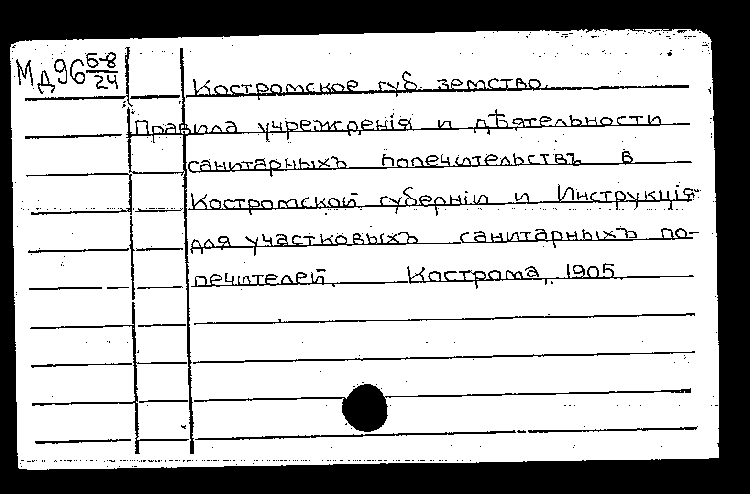 Мд96 5-8/24
Костромское губ. земство.
Правила учрежденія и дѣятельности
санитарныхъ попечительствъ в
Костромской губерніи и Инструкція
для участковыхъ санитарныхъ по-
печителей. Кострома, 1905.